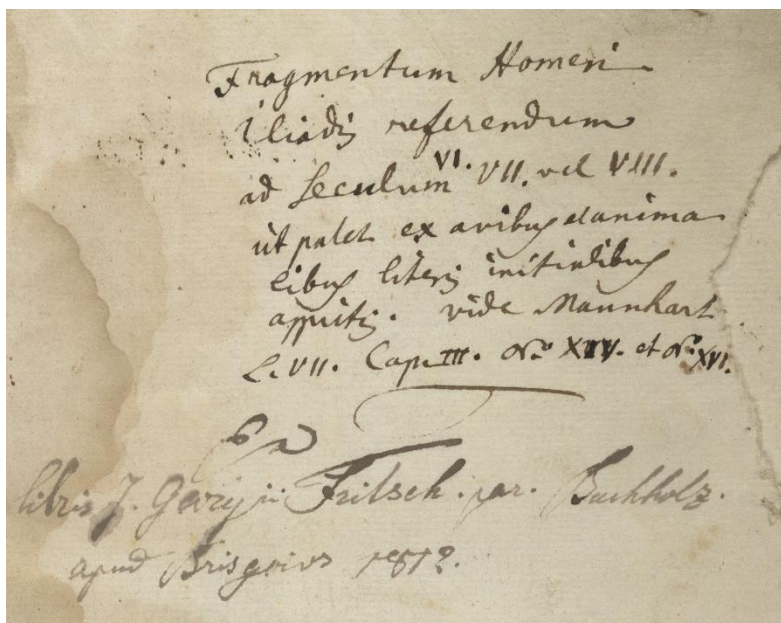 Fragmentum Homeri
Iliadis referendum
ad Seculum VI. VII. vel VIII.
ut patet ex avibus et anima
libus literis initialibus
appictis. vide Mannhart
L. VII. Cap. III. No. XIV. et No. XVI.
Ex
libris J. Georgii Fritsch. par. Buchholz.
apud Brisgoios 1812.